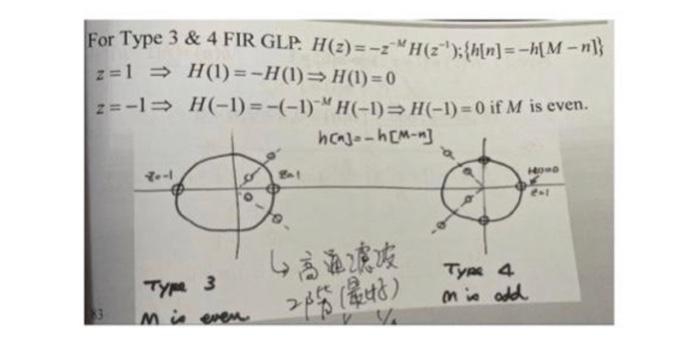 For Type 3 & 4 FIR GLP: H(z)=-z^{-M}H(z^{-1});{h[n]=-h[M-n]}
z=1 ⇒ H(1)=-H(1)⇒H(1)=0
z=-1⇒ H(-1)=-(-1)^{-M}H(-1)⇒H(-1)=0 if M is even.
h[n]=-h[M-n]
z=-1
z=1
H(1)=0
z=1
↳高通滤波
2阶(最好)
Type 3
M is even
Type 4
M is odd
83